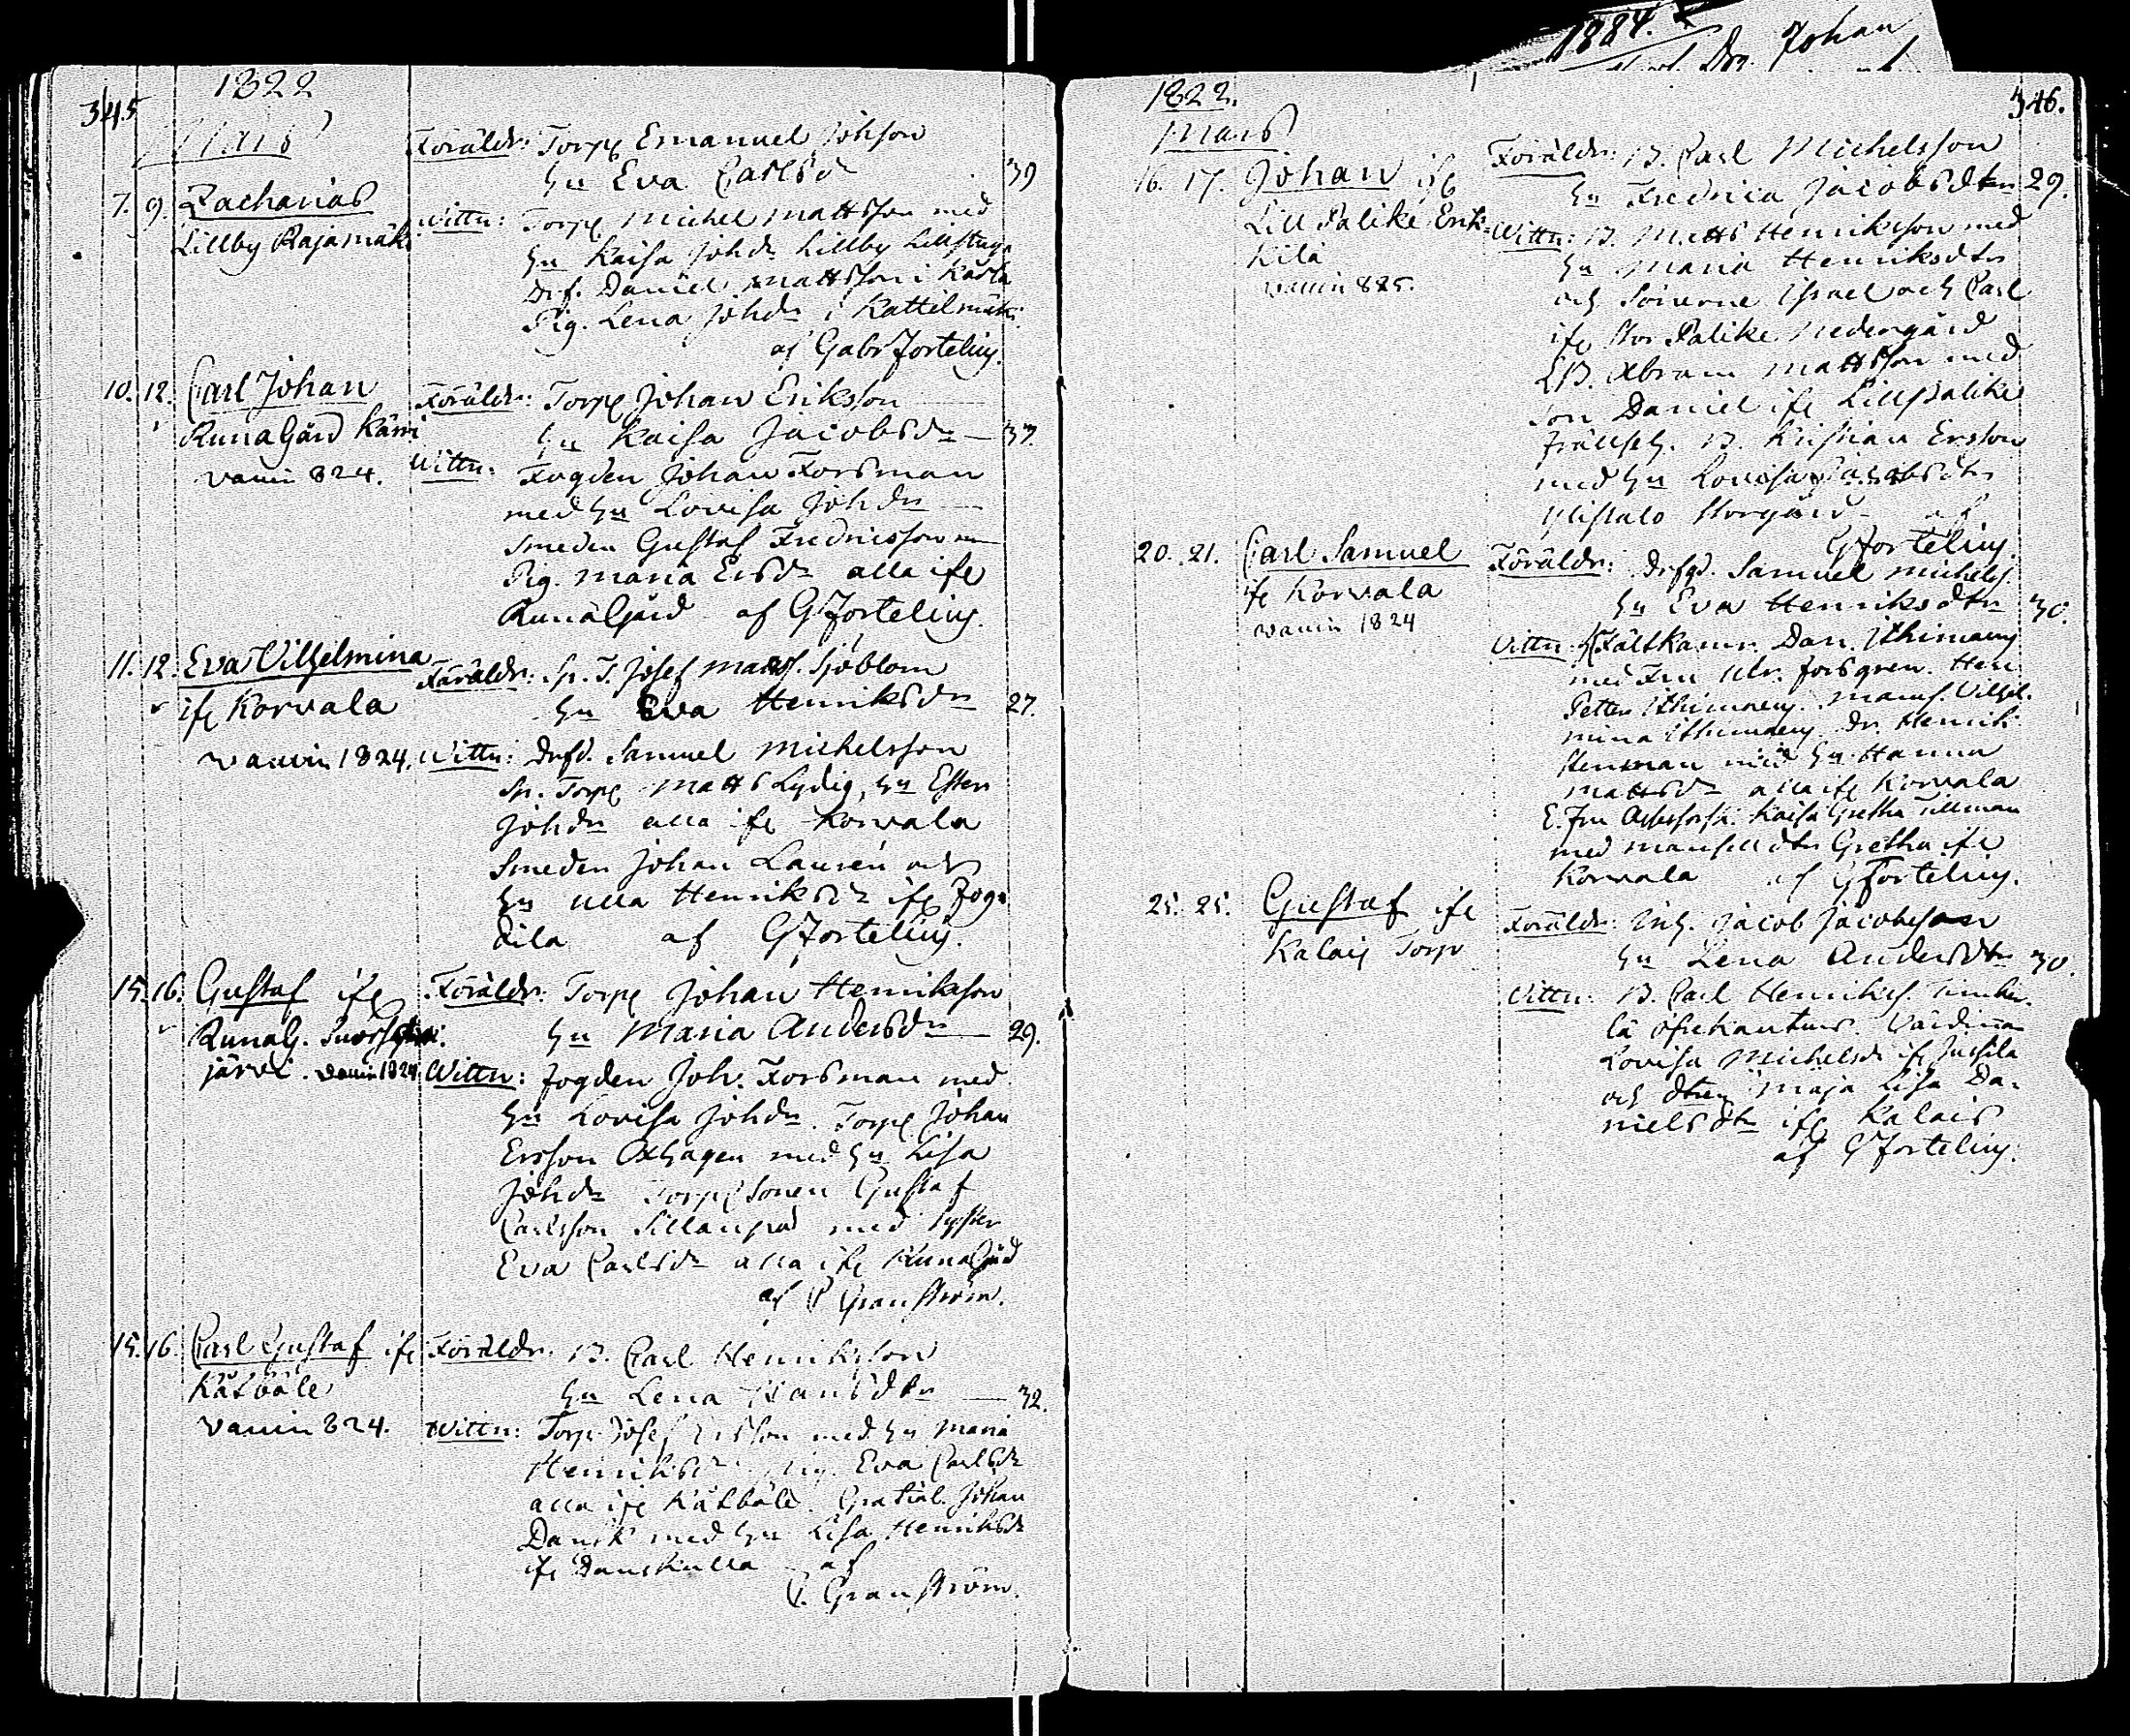 1884.
Johan
345
1822
Mars
Föräldr: Torp Emanuel Johsson
hu Eva Carlsdr 39
7. 9. Zacharias
Lillby Rajamäki
Wittn: Torp Michel Mattsson med
hu Kaisa Johdr Lillby Lillstuga
Drf. Daniel Mattsson i
Pig. Lena Johdr i Kattilmäki
af Gabr Fortelius.
10. 12. Carl Johan
RunaGård
vaccin 824.
Föräldr: Torp Johan Eriksson
hu Kaisa Jacobsdr 37.
Wittn: Fogden Johan Forsman
med hu Lovisa Johdr
Smeden Gustaf Fredricsson
Pig. Maria Ersdr alla ifr
RunaGård af GFortelius.
11. 12. Eva Vilhelmina
ifr Korvala
vaccin 1824.
Föräldr: Sp. T. Josef Sjöblom
hu Eva Henriksdr 27.
Wittn: Drfd. Samuel Michelsson
Sp. Torp Matts Lydig, hu Ester
Johdr alla ifr Korvala
Smeden Johan Laurén och
hu Ulla Henriksdr ifr
kila af GFortelius.
15. 16. Gustaf ifr
RunaG.
järvi. vaccin 1824
Föräldr: Torp Johan Henriksson
hu Maria Andersdr 29.
Wittn: Fogden Joh. Forsman med
hu Lovisa Johdr. Torp Johan
Ersson Oxhagen med hu Lisa
Johdr Torp Sonen Gustaf
Carlsson Sillanpää med syster
Eva Carlsdr alla ifr RunaGård
af Granström.
15. 16. Carl Gustaf ifr
Kätböle
vaccin 824.
Föräldr. B. Carl Henriksson
hu Lena 32.
Wittn: Torp Josef Ersson med hu Maria
Henriksdr Pig. Eva Carlsdr
alla ifr Kätböle. Gratial. Johan
Dansk med hu Lisa Henriksdr
ifr Danskulla af
Granström.
1822.
346.
Mars
16. 17. Johan ifr
Lill Palike Erk-
kilä
vaccin 825.
Föräldr: B. Carl Michelsson
hu Fredrica Jacobsdtr 29.
Wittn: B. Matts Henriksson med
hu Maria Henriksdtr
och Sönerne Israel och Carl
ifr Stor Palike Nedergård
LB. Abram Mattsson med
Son Daniel ifr LillPalike
B. Kristian Ersson
med hu Lovisa Jacobsdtr
Storgård af
GFortelius.
20. 21. Carl Samuel
ifr Korvala
vaccin 1824
Föräldr: Drfgd. Samuel Michels.
hu Eva Henriksdtr 30.
Wittn: Fältkamr. Dan. Ithimaeus
med Fru Ulr. Forsgren. Herr
Petter Ithimaeus. Mams. Vilhel-
mina Ithimaeus. Dr. Henrik
Stenman med hu Hanna
Mattsdr alla ifr Korvala
Kaisa Gretha Tillman
med mamsell dtr Gretha ifr
Korvala af GFortelius.
25. 25. Gustaf ifr
Kalais Torp
Föräldr: Inh. Jacob Jacobsson
hu Lena Andersdtr 30.
Wittn: B. Carl Henriks.
Värdinnan
Lovisa Michelsdr ifr Jussila
och dtren Maja Lisa Da-
nielsdtr ifr Kalais
af GFortelius.